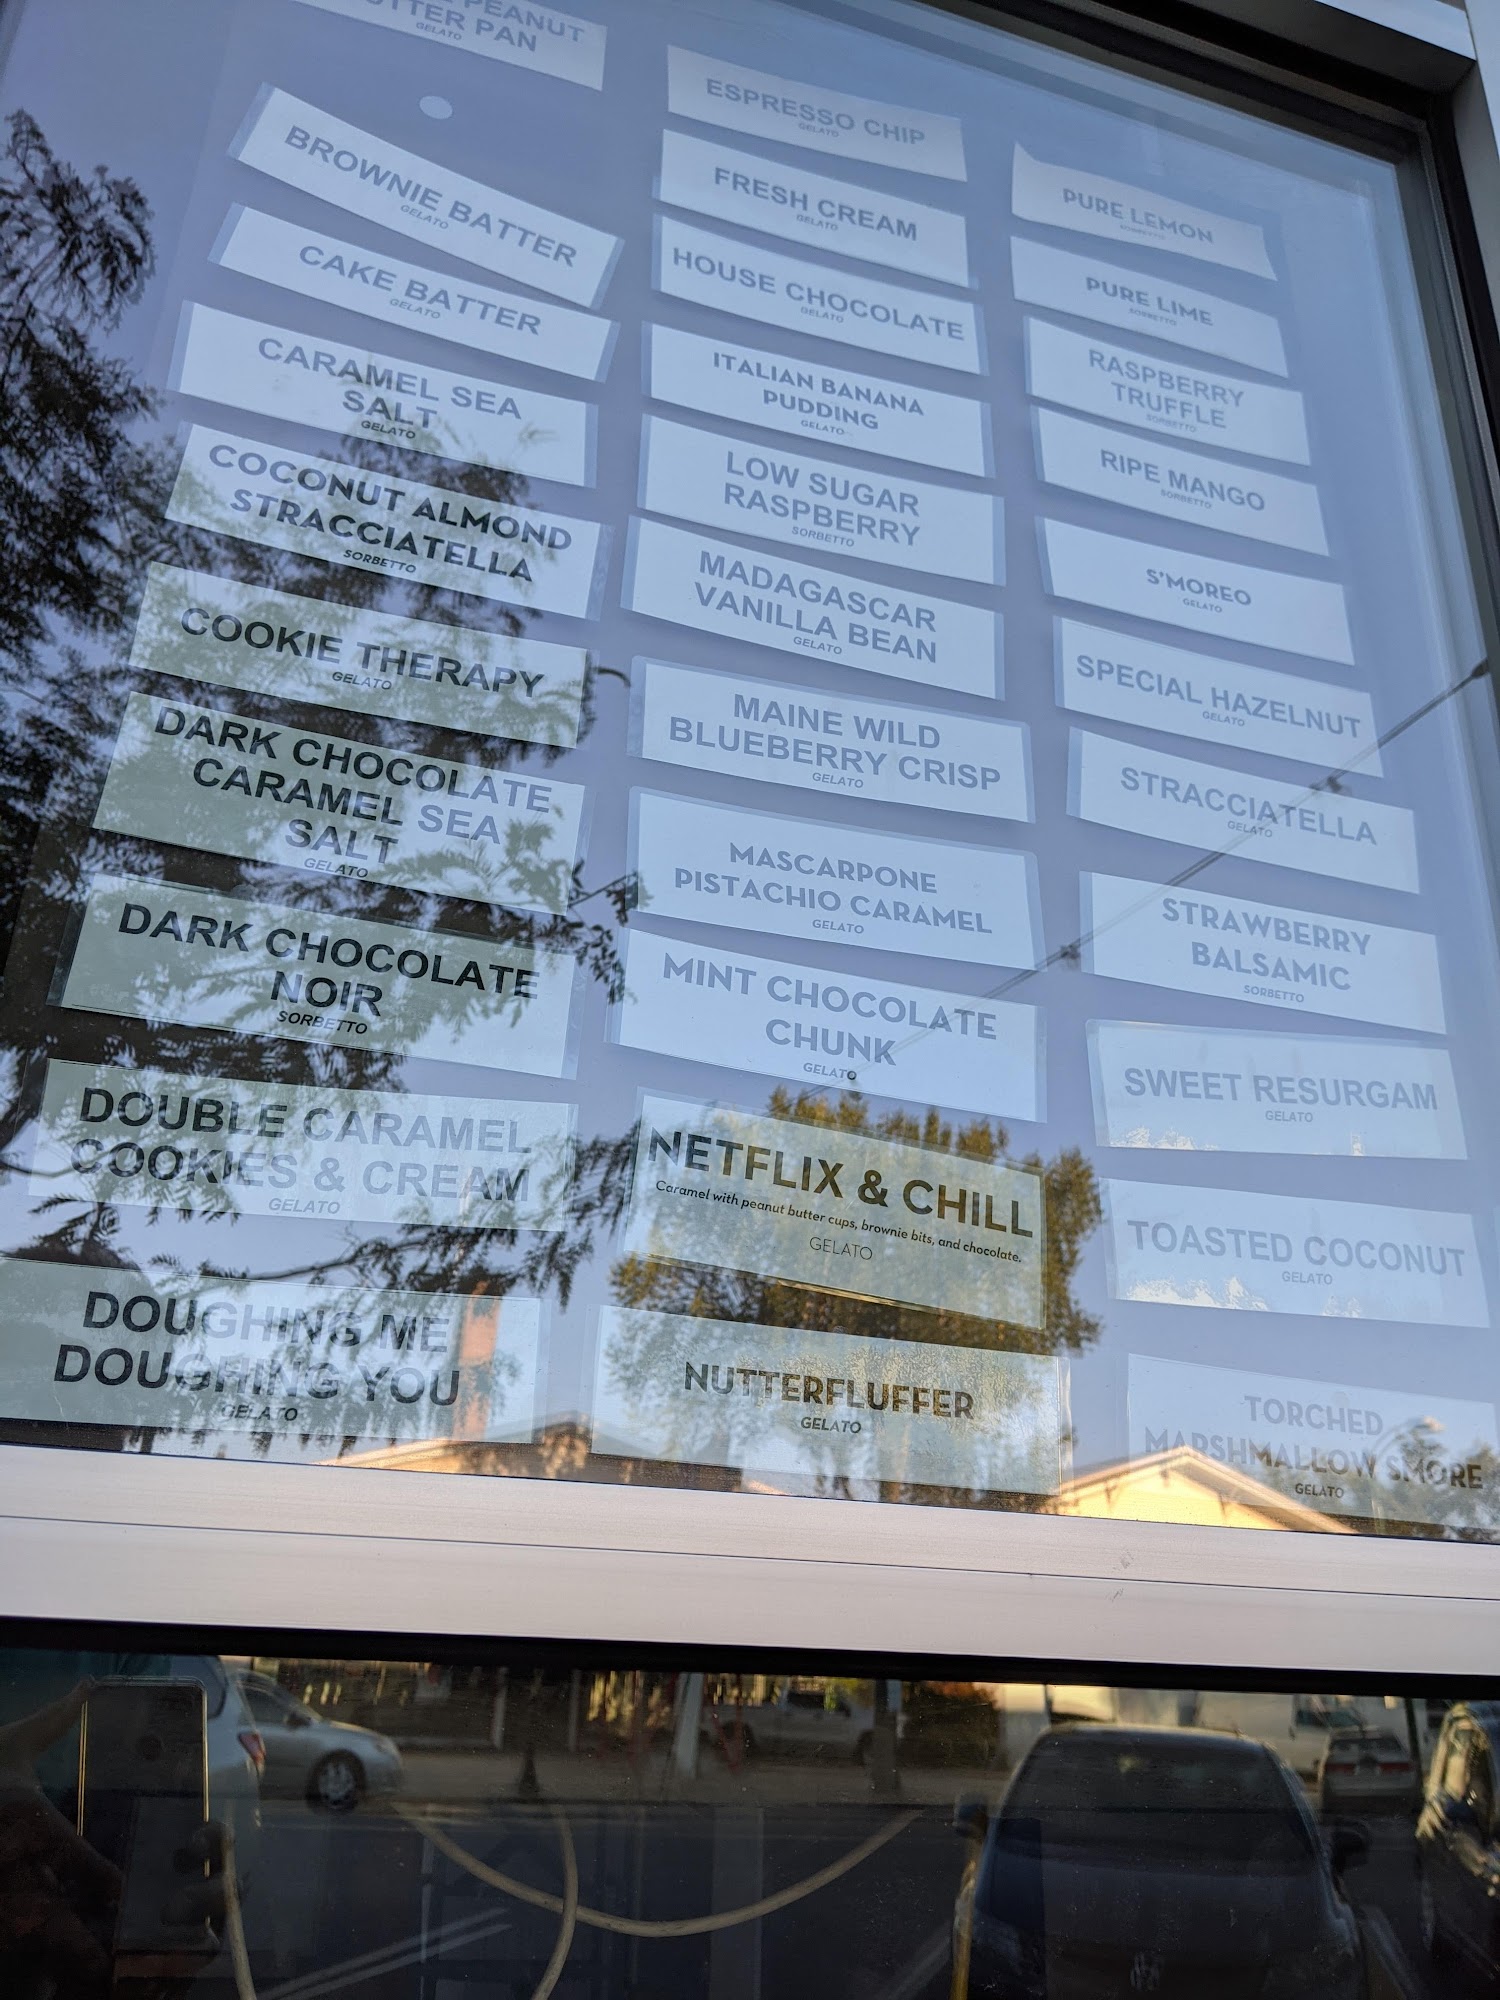 PEANUT
BUTTER PAN
GELATO
BROWNIE BATTER
GELATO
CAKE BATTER
GELATO
CARAMEL SEA
SALT
GELATO
COCONUT ALMOND
STRACCIATELLA
SORBETTO
COOKIE THERAPY
GELATO
DARK CHOCOLATE
CARAMEL SEA
SALT
GELATO
DARK CHOCOLATE
NOIR
SORBETTO
DOUBLE CARAMEL
COOKIES & CREAM
GELATO
DOUGHING ME
DOUGHING YOU
GELATO
ESPRESSO CHIP
GELATO
FRESH CREAM
GELATO
HOUSE CHOCOLATE
GELATO
ITALIAN BANANA
PUDDING
GELATO
LOW SUGAR
RASPBERRY
SORBETTO
MADAGASCAR
VANILLA BEAN
GELATO
MAINE WILD
BLUEBERRY CRISP
GELATO
MASCARPONE
PISTACHIO CARAMEL
GELATO
MINT CHOCOLATE
CHUNK
GELATO
NETFLIX & CHILL
Caramel with peanut butter cups, brownie bits, and chocolate.
GELATO
NUTTERFLUFFER
GELATO
PURE LEMON
SORBETTO
PURE LIME
SORBETTO
RASPBERRY
TRUFFLE
SORBETTO
RIPE MANGO
SORBETTO
S'MOREO
GELATO
SPECIAL HAZELNUT
GELATO
STRACCIATELLA
GELATO
STRAWBERRY
BALSAMIC
SORBETTO
SWEET RESURGAM
GELATO
TOASTED COCONUT
GELATO
TORCHED
MARSHMALLOW SMORE
GELATO